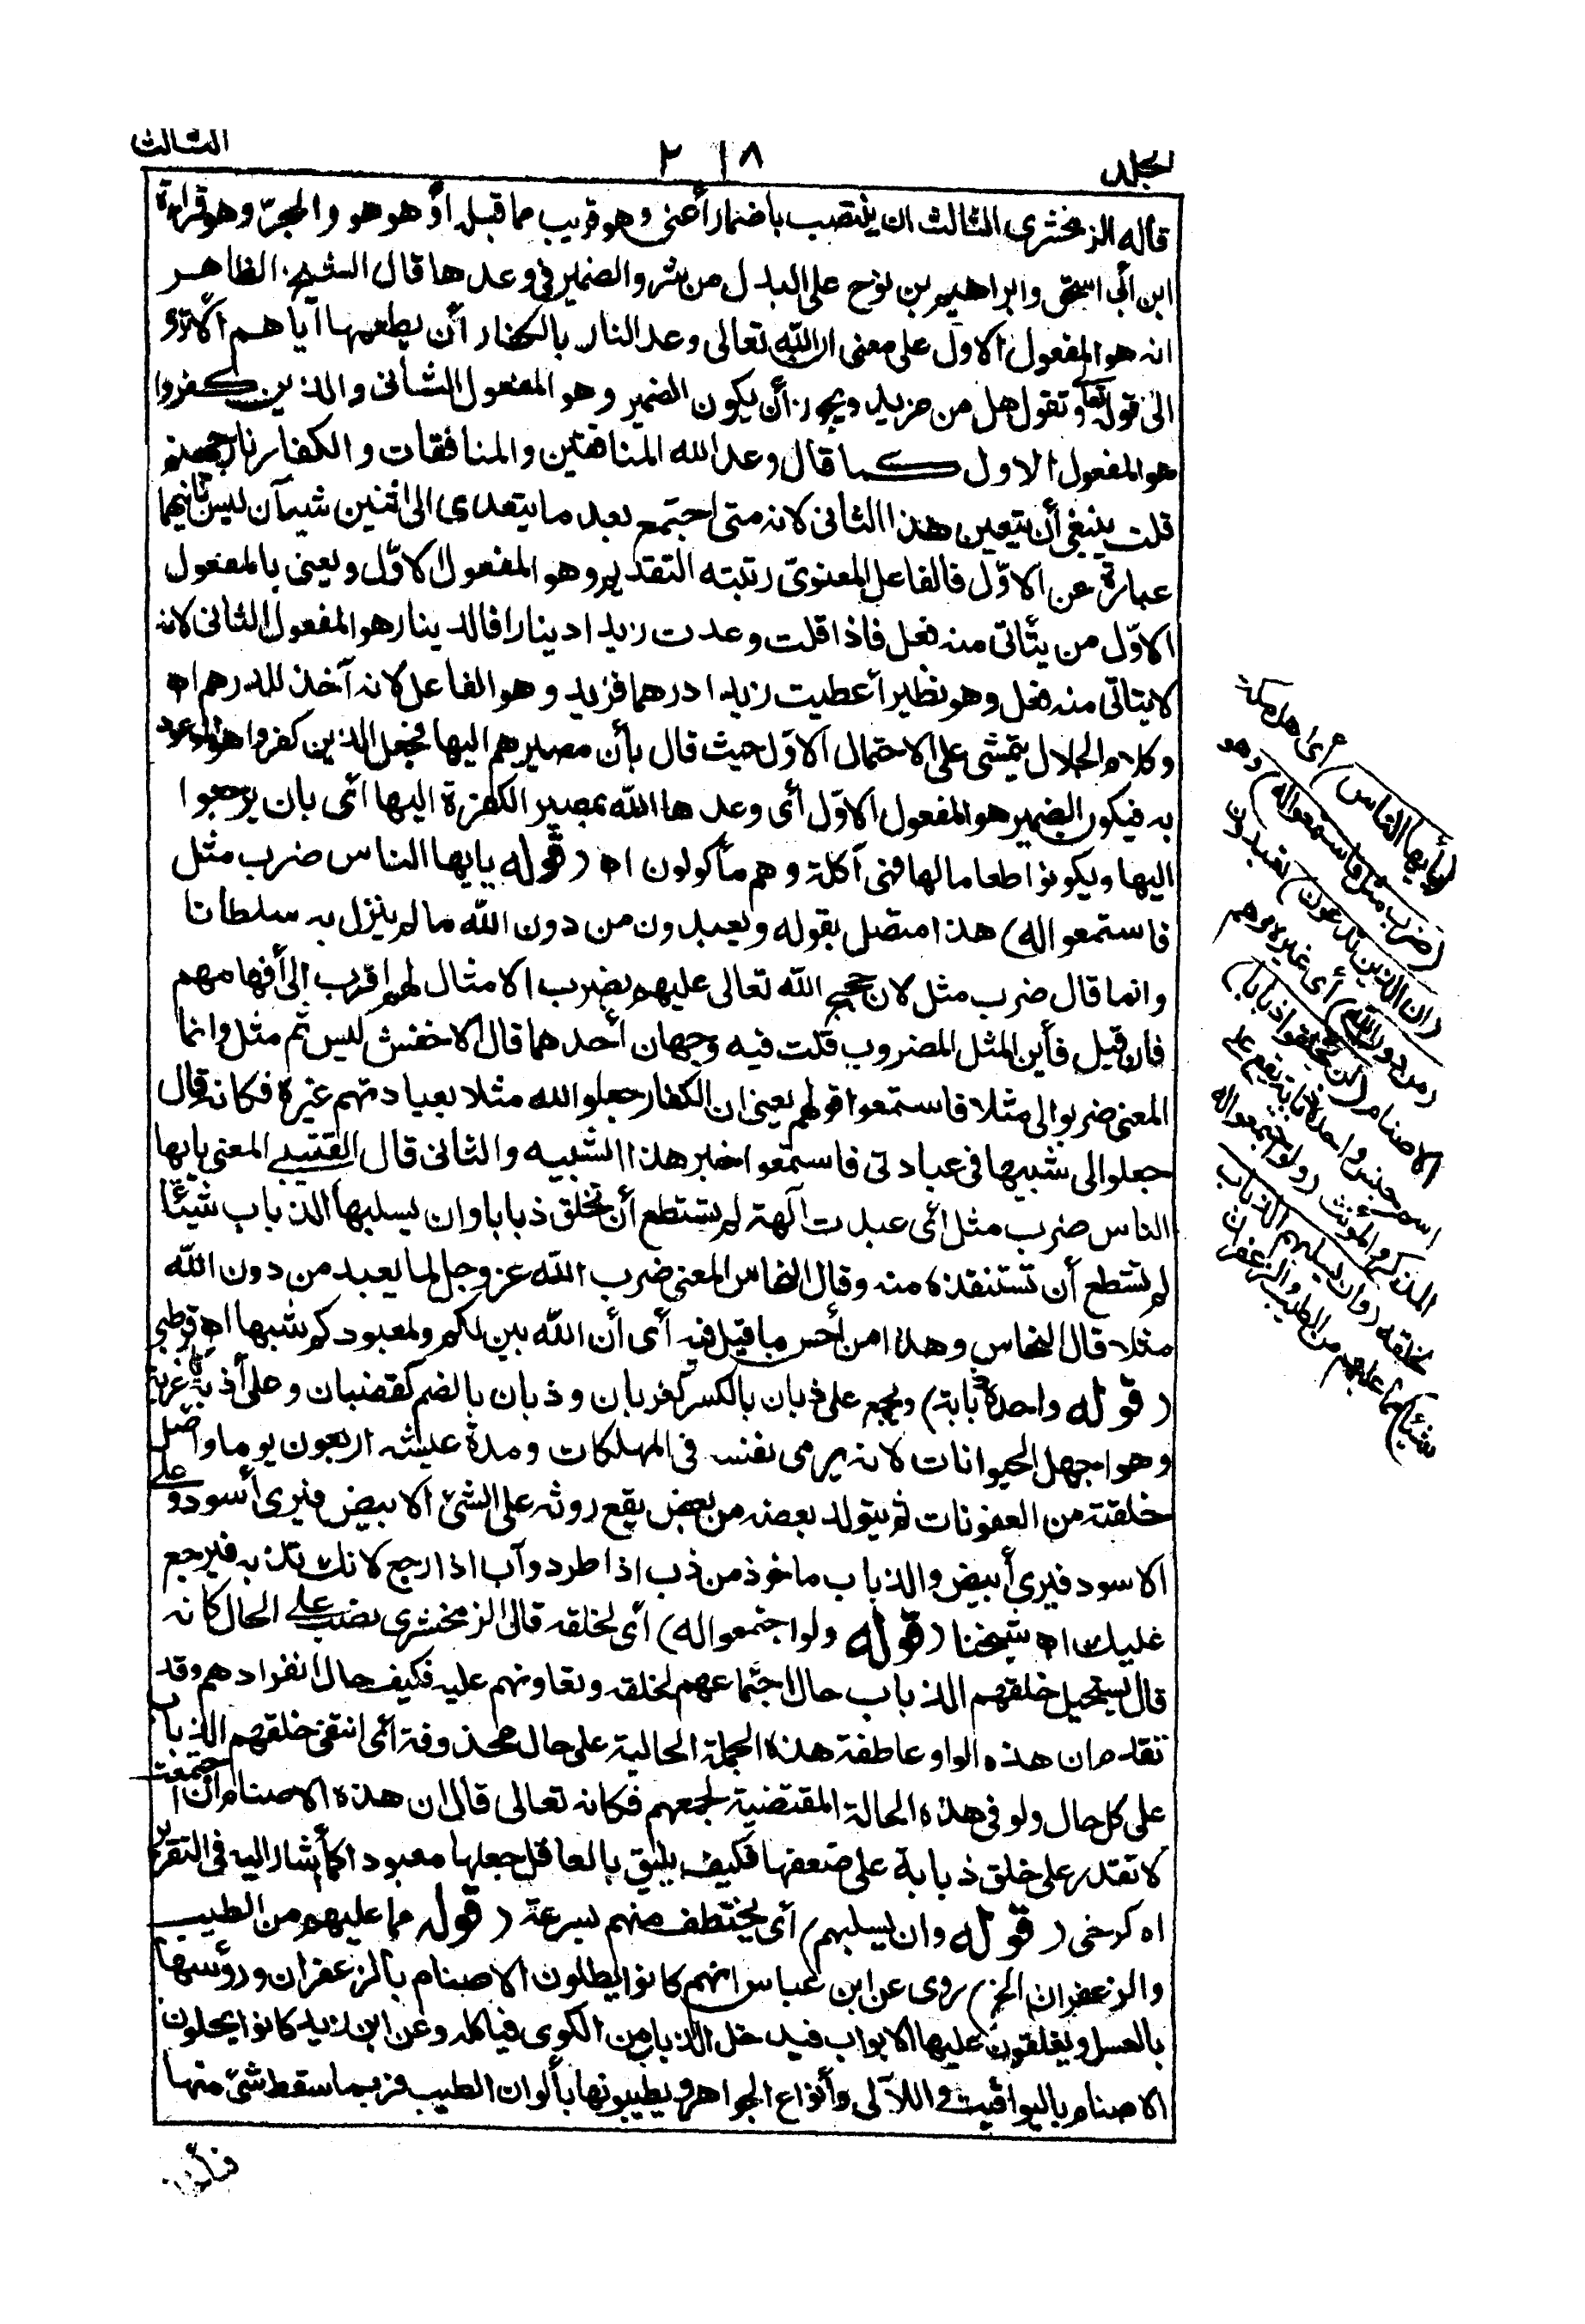 المجلد ٢١٨ الثالث
قاله الزمخشرى الثالث ان ينتصب باضمار أعنى وهو قريب مما قبله أو هو هو والجرّ وهو قراءة
ابن أبى اسحق وابراهيم بن نوح على البدل من بشر والضمير فى وعدها قال الشيخ الظاهر
انه هو المفعول الاول على معنى ان الله تعالى وعد النار بالكفار أن يطعمها اياهم ألا ترى
الى قوله تعالى وتقول هل من مزيد ويجوز أن يكون الضمير وهو المفعول الثانى والذين كفروا
هو المفعول الاول كما قال وعد الله المنافقين والمنافقات والكفار نار جهنم
قلت ينبغى أن يتعين هذا الثانى لانه متى اجتمع بعد ما يتعدى الى اثنين شيآن ليس ثانيهما
عبارة عن الاوّل فالفاعل المعنوىّ رتبته التقديم وهو المفعول الاوّل ويعنى بالمفعول
الاوّل من يتأتى منه فعل فاذا قلت وعدت زيدا دينارا فالدينار هو المفعول الثانى لانه
لا يتاتى منه فعل وهو نظير أعطيت زيدا درهما فزيد وهو الفاعل لانه آخذ للدرهم اه
وكلام الجلال يتمشى على الاحتمال الاوّل حيث قال بأن مصيرهم اليها فجعل الذين كفروا هو الموعود
به فيكون الضمير هو المفعول الاوّل أى وعدها الله بمصير الكفرة اليها أى بان يرجعوا
اليها ويكونوا طعاما لها فهى آكلة وهم مأكولون اه (قوله يايها الناس ضرب مثل
فاستمعوا له) هذا متصل بقوله ويعبدون من دون الله ما لم ينزل به سلطانا
وانما قال ضرب مثل لان حجج الله تعالى عليهم بضرب الامثال لهم اقرب الى أفهامهم
فان قيل فأين المثل المضروب قلت فيه وجهان أحدهما قال الاخفش ليس ثم مثل وانما
المعنى ضربوا لى مثلا فاستمعوا قولهم يعنى ان الكفار جعلوا لله مثلا بعبادتهم غيره فكانه قال
جعلوا لى شبيها فى عبادتى فاستمعوا خبر هذا الشبيه والثانى قال القتيبى المعنى يايها
الناس ضرب مثل أى عبدت آلهة لم تستطع أن تخلق ذبابا وان يسلبها الذباب شيئا
لم تستطع أن تستنقذه منه وقال النحاس المعنى ضرب الله عز وجل لما يعبد من دون الله
مثلا قال النحاس وهذا من أحسن ما قيل فيه أى أن الله بين لكم ولمعبودكم شبها اه قرطبى
(قوله واحده ذبابة) ويجمع على ذبان بالكسر كغربان وذبان بالضم كقضبان وعلى أذبة كأغربة
وهو اجهل الحيوانات لانه يرمى نفسه فى المهلكات ومدة عيشه اربعون يوما واصل
خلقته من العفونات ثم يتولد بعضه من بعض يقع روثه على الشئ الابيض فيرى أسود وعلى
الاسود فيرى أبيض والذباب ماخوذ من ذب اذا طرد وآب اذا رجع لانك تذبه فيرجع
عليك اه شيخنا (قوله ولو اجتمعوا له) أى لخلقه قال الزمخشرى نصب على الحال كانه
قال يستحيل خلقهم الذباب حال اجتماعهم لخلقه وتعاونهم عليه فكيف حال انفرادهم وقد
تقدم ان هذه الواو عاطفة هذه الجملة الحالية على حال محذوفة أى انتفى خلقهم الذباب
على كل حال ولو فى هذه الحالة المقتضية لجمعهم فكانه تعالى قال ان هذه الاصنام ان اجتمعت
لا تقدر على خلق ذبابة على ضعفها فكيف يليق بالعاقل جعلها معبودا كما أشار اليه فى التقرير
اه كرخى (قوله وان يسلبهم) أى يختطف منهم بسرعة (قوله مما عليهم من الطيب
والزعفران الخ) روى عن ابن عباس انهم كانوا يطلون الاصنام بالزعفران ورؤسها
بالعسل ويغلقون عليها الابواب فيدخل الذباب من الكوى فيأكله وعن ابن زيد كانوا يحلون
الاصنام باليواقيت واللآلى وأنواع الجواهر ويطيبونها بألوان الطيب فربما سقط شئ منها
(يأيها الناس) أى اهل مكة
(ضرب مثل فاستمعوا له) وهو
(ان الذين تدعون) تعبدون
(من دون الله) أى غيره وهم
الاصنام (لن يخلقوا ذبابا)
اسم جنس واحده ذبابة يقع على
المذكر والمؤنث (ولو اجتمعوا له)
لخلقه (وان يسلبهم الذباب
شيئا) مما عليهم من الطيب والزعفران